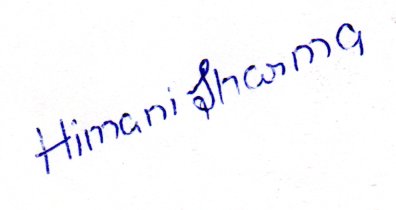 Himani Sharma